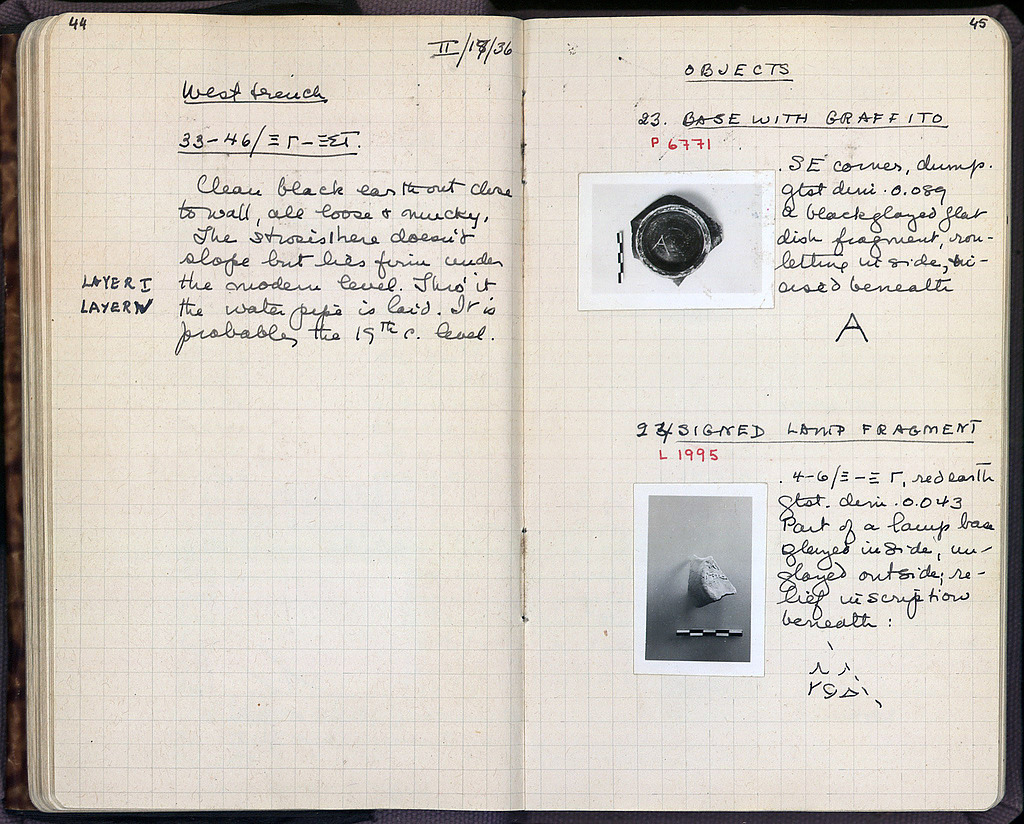 44
II/18/36
West trench
33-46/Ξ Γ-ΞΣΤ.
Clean black earth out close
to wall, all loose & mucky.
The strosis here doesn't
slope but lies firm under
LAYER I the modern level. Thro' it
LAYER IV the water pipe is laid. It is
probably the 19th c. level.
45
OBJECTS
23. BASE WITH GRAFFITO
P 6771
. SE corner, dump.
gtst dim. 0.089
a black glazed flat
dish fragment, rou-
letting inside, in-
cised beneath
A
A
24 SIGNED LAMP FRAGMENT
L 1995
. 4-6/Ξ-Ξ Γ, red earth
gtst. dim. 0.043
Part of a lamp base
glazed inside, un-
glazed outside; re-
lief inscription
beneath :